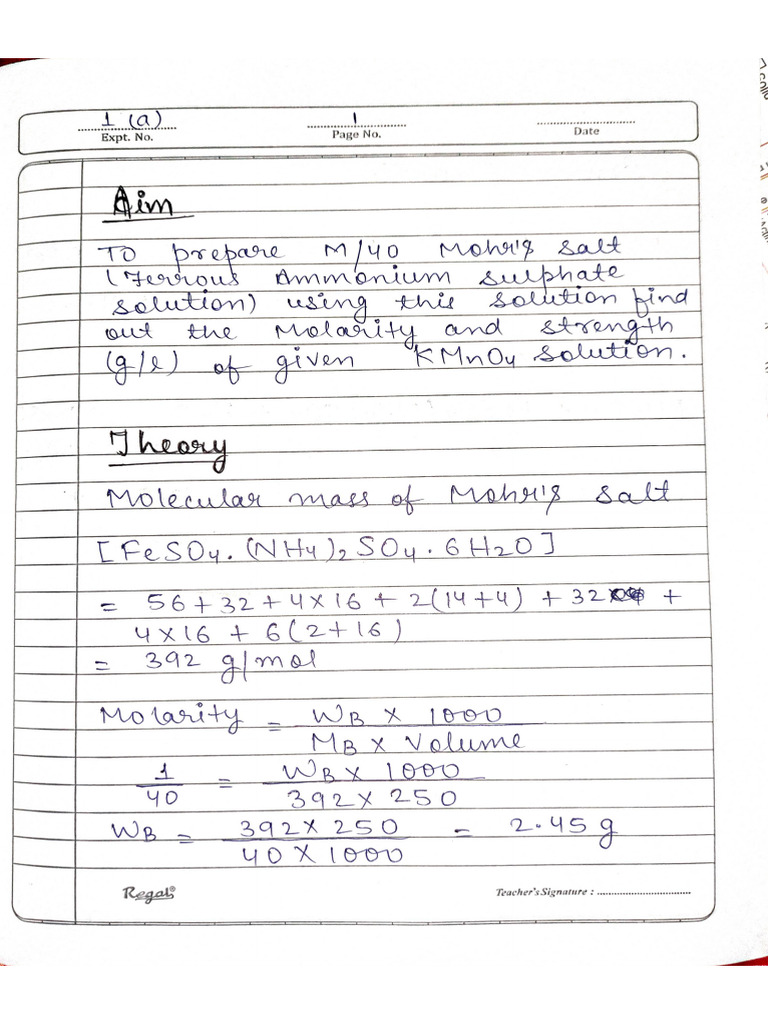 1 (a)
Expt. No.
1
Page No.
Date
Aim
To prepare M/40 Mohr's salt
(Ferrous Ammonium sulphate
solution) using this solution find
out the Molarity and strength
(g/l) of given KMnO4 solution.
Theory
Molecular mass of Mohr's salt
[FeSO4.(NH4)2SO4.6H2O]
= 56+32+4×16+2(14+4) + 32 +
4×16 + 6(2+16)
= 392 g/mol
Molarity = WB × 1000
MB × Volume
1 = WB × 1000
40 392 × 250
WB = 392 × 250 = 2.45 g
40 × 1000
Regal®
Teacher's Signature :